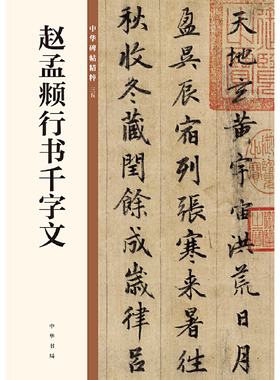 赵孟𫖯行书千字文
中华碑帖精粹
中华书局
天地玄黄宇宙洪荒日月
盈昃辰宿列張寒来暑往
秋收冬藏閏餘成歲律吕